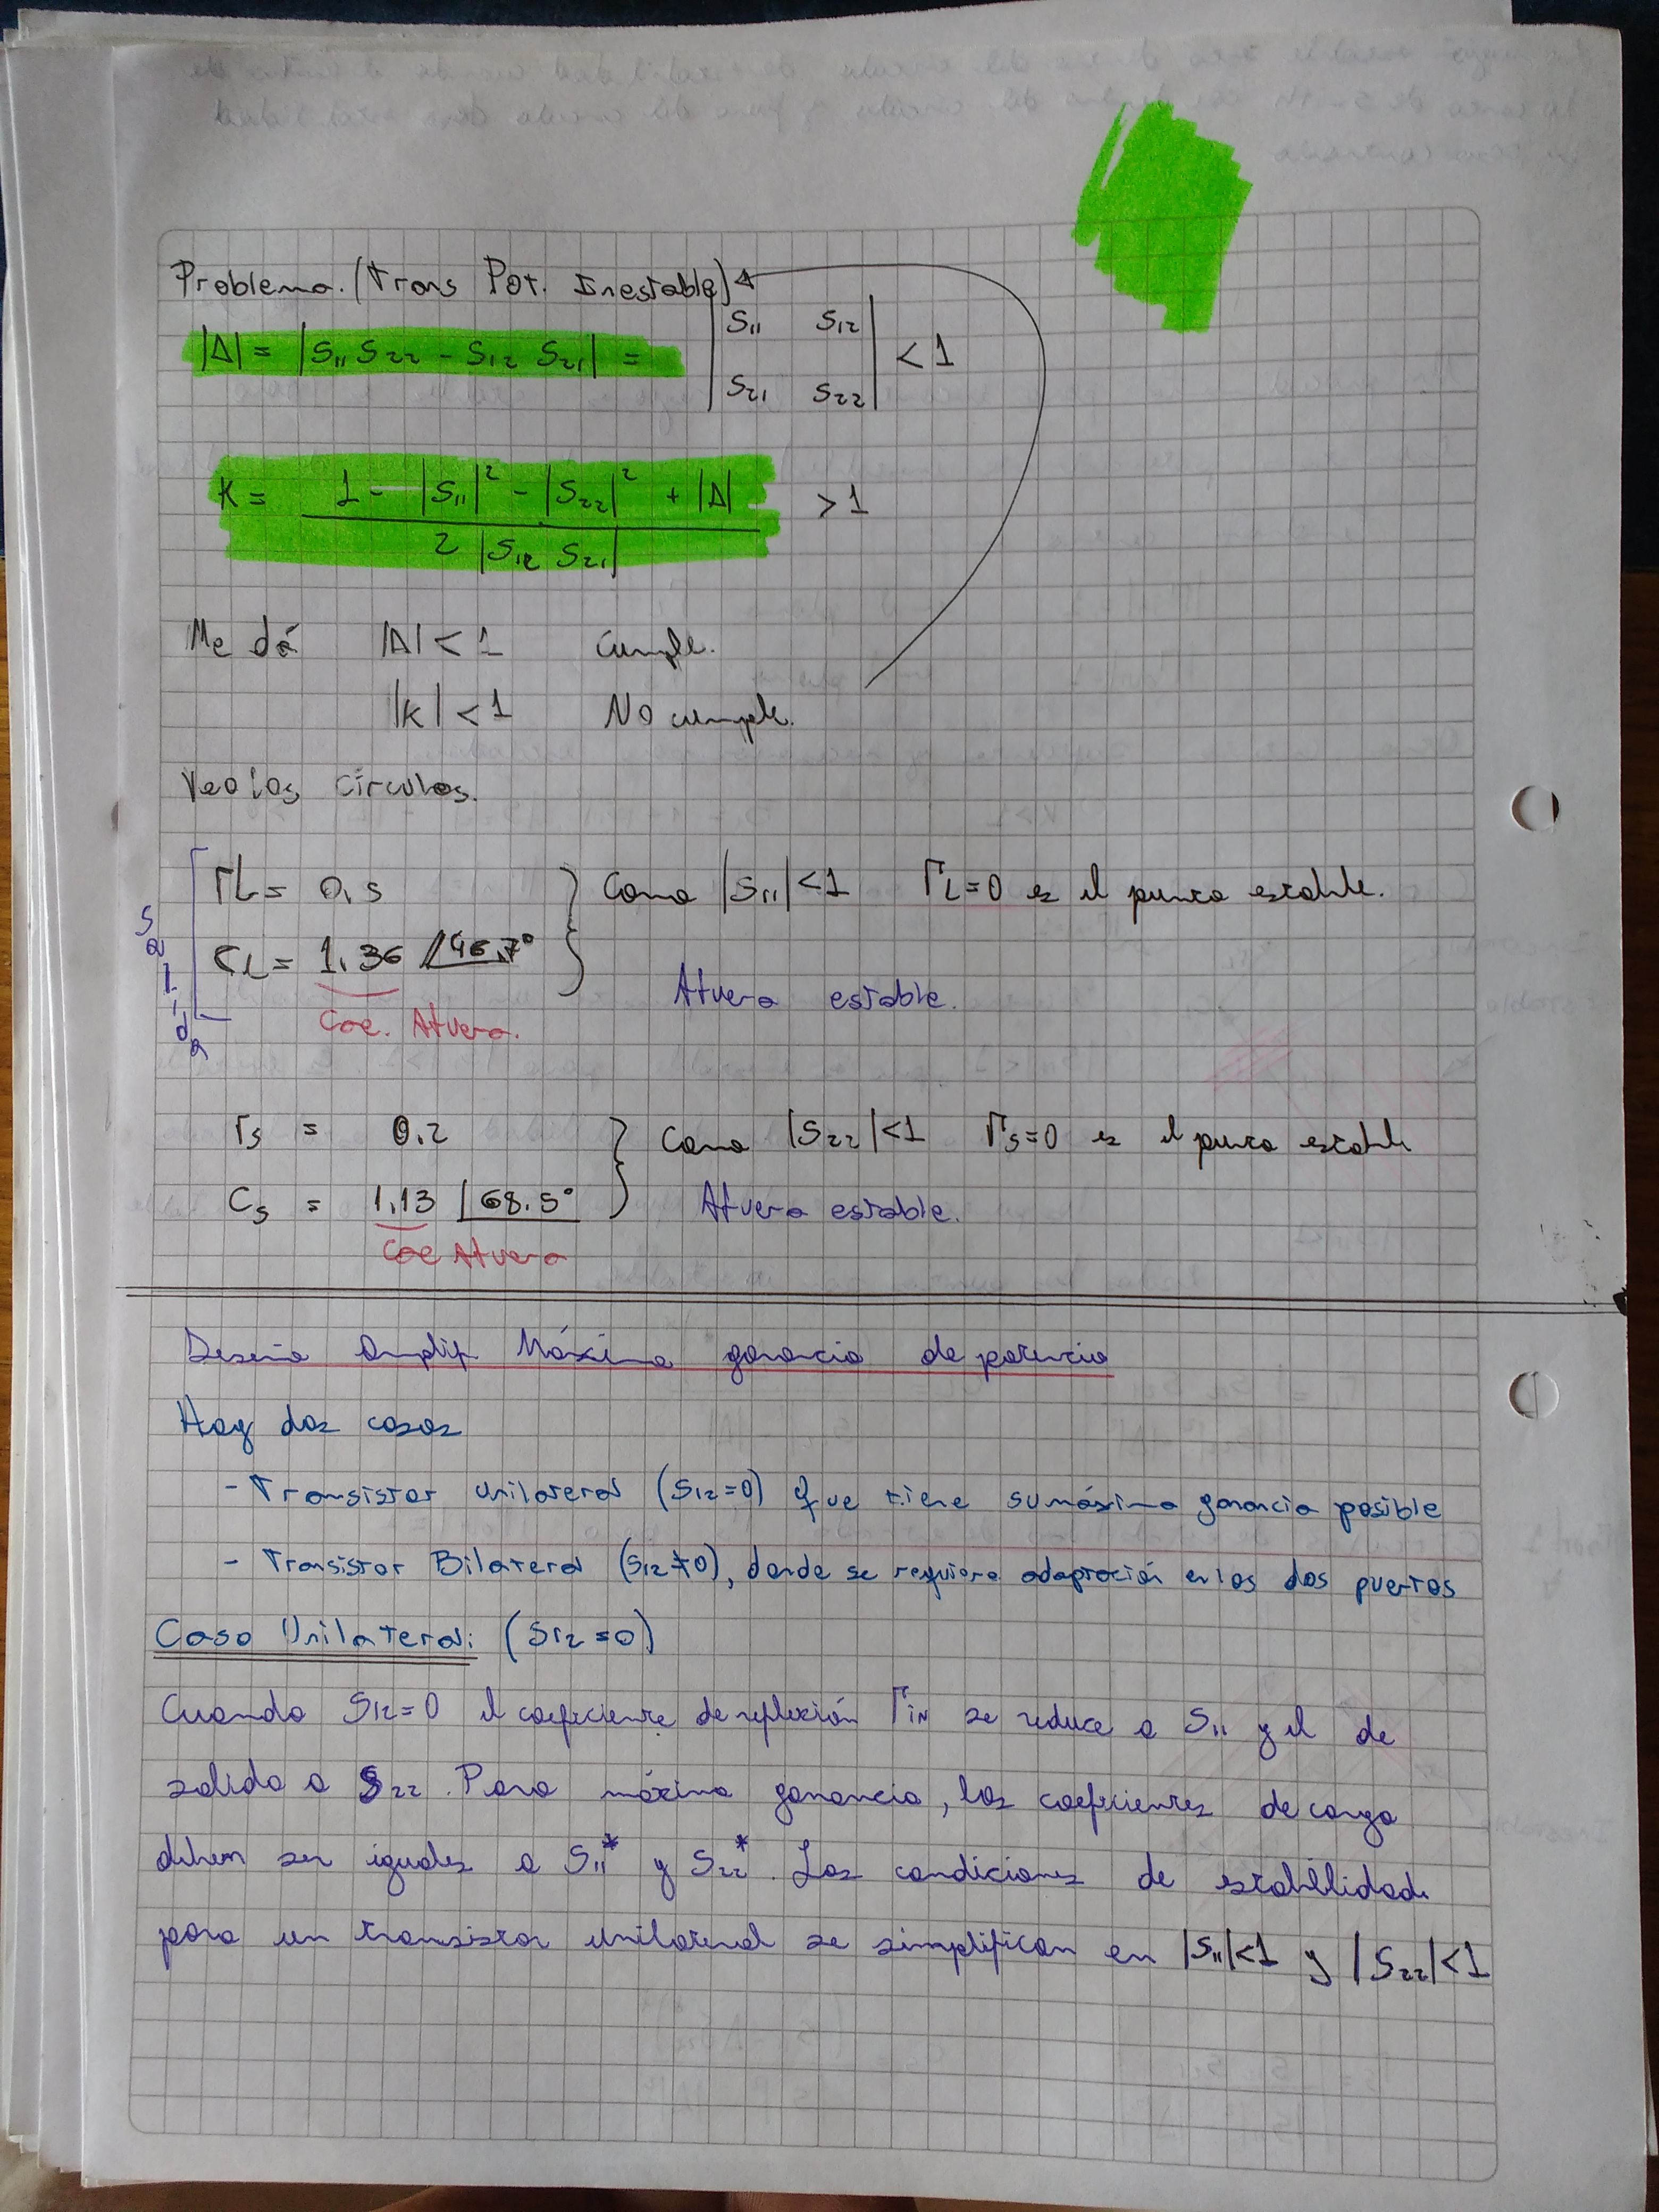 Problema. (Trans Pot. Inestable)
|Δ| = |S11 S22 - S12 S21| = | S11 S12 | < 1
S21 S22
K = 1 - |S11|² - |S22|² + |Δ| > 1
2 |S12 S21|
Me dá |Δ| < 1 Cumple.
|K| < 1 No cumple.
Veo los círculos.
Salida
rL = 0.5 } Como |S11| < 1 ΓL = 0 es el punto estable.
CL = 1.36 /46.7°
Afuera estable.
Cae. Afuera.
rs = 0.2 } Como |S22| < 1 Γs = 0 es el punto estable
Cs = 1.13 /68.5° Afuera estable.
Cae Afuera
Diseño Amplif Máxima ganancia de potencia
Hay dos casos
- Transistor unilateral (S12=0) que tiene su máxima ganancia posible
- Transistor Bilateral (S12≠0), donde se requiere adaptación en los dos puertos
Caso Unilateral: (S12=0)
Cuando S12=0 el coeficiente de reflexión ΓIN se reduce a S11 y el de
salida a S22. Para máxima ganancia, los coeficientes de carga
deben ser iguales a S11* y S22*. Las condiciones de estabilidad
para un transistor unilateral se simplifican en |S11|<1 y |S22|<1